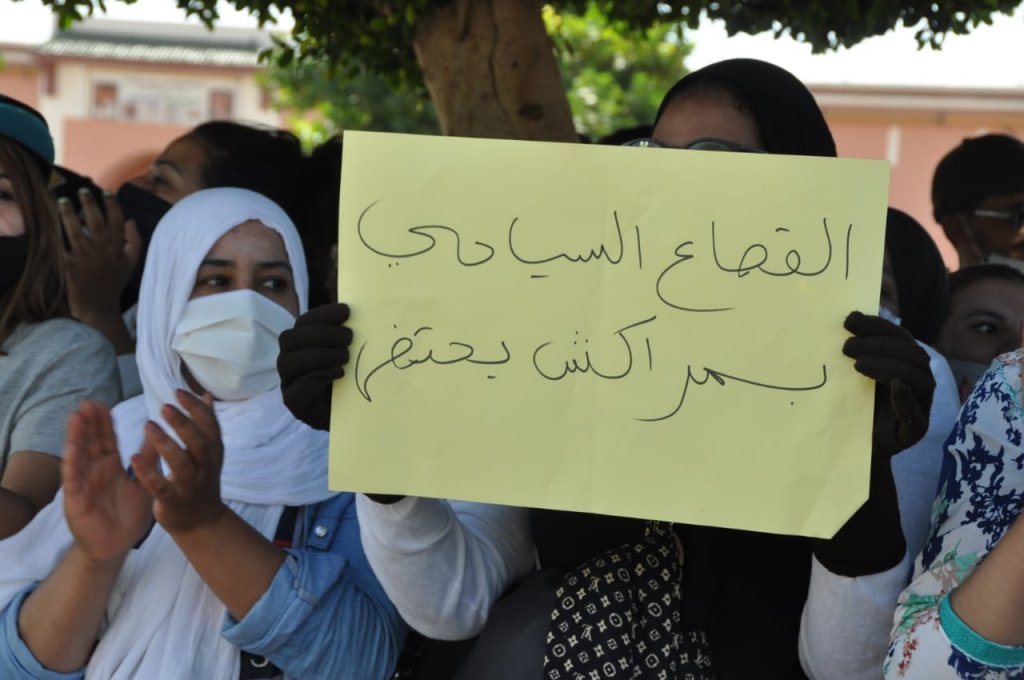 القطاع السياحي
بمراكش يحتضر